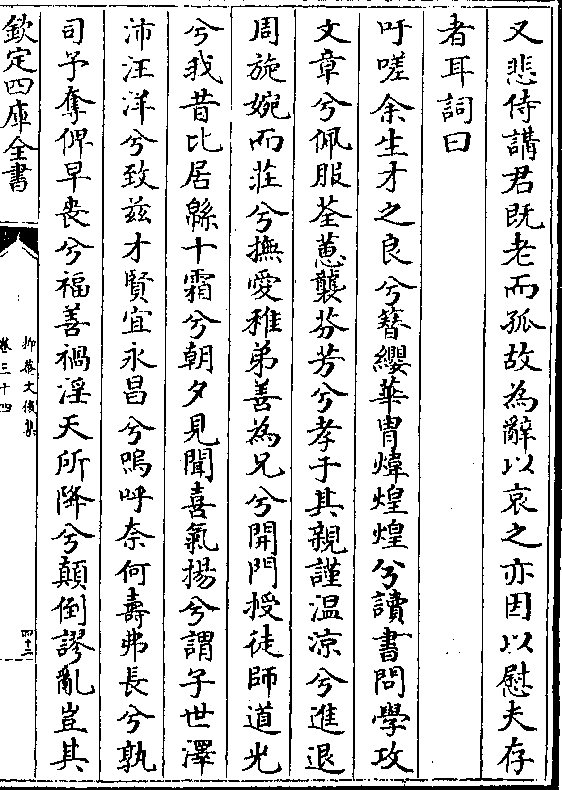 又悲侍講君既老而孤故為辭以哀之亦因以慰夫存
者耳詞曰
吁嗟余生才之良兮簪纓華胄煒煌煌兮讀書問學攻
文章兮佩服荃蔥襲芬芳兮孝于其親謹温凉兮進退
周旋婉而莊兮撫愛稚弟善為兄兮開門授徒師道光
兮我昔比居緜十霜兮朝夕見聞喜氣揚兮謂子世澤
沛汪洋兮致兹才賢宜永昌兮嗚呼奈何壽弗長兮孰
司予奪俾早喪兮福善禍淫天所降兮顛倒謬亂豈其
欽定四庫全書
抑菴文後集
卷三十四
四十三